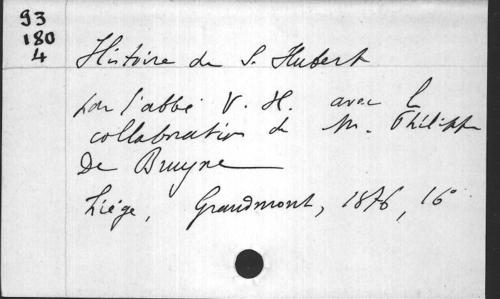 93
180
4
Histoire de S. Hubert
par l'abbé V. H. avec la
collaboration de M. Philippe
De Bruyne
Liége, Grandmont, 1876, 16°